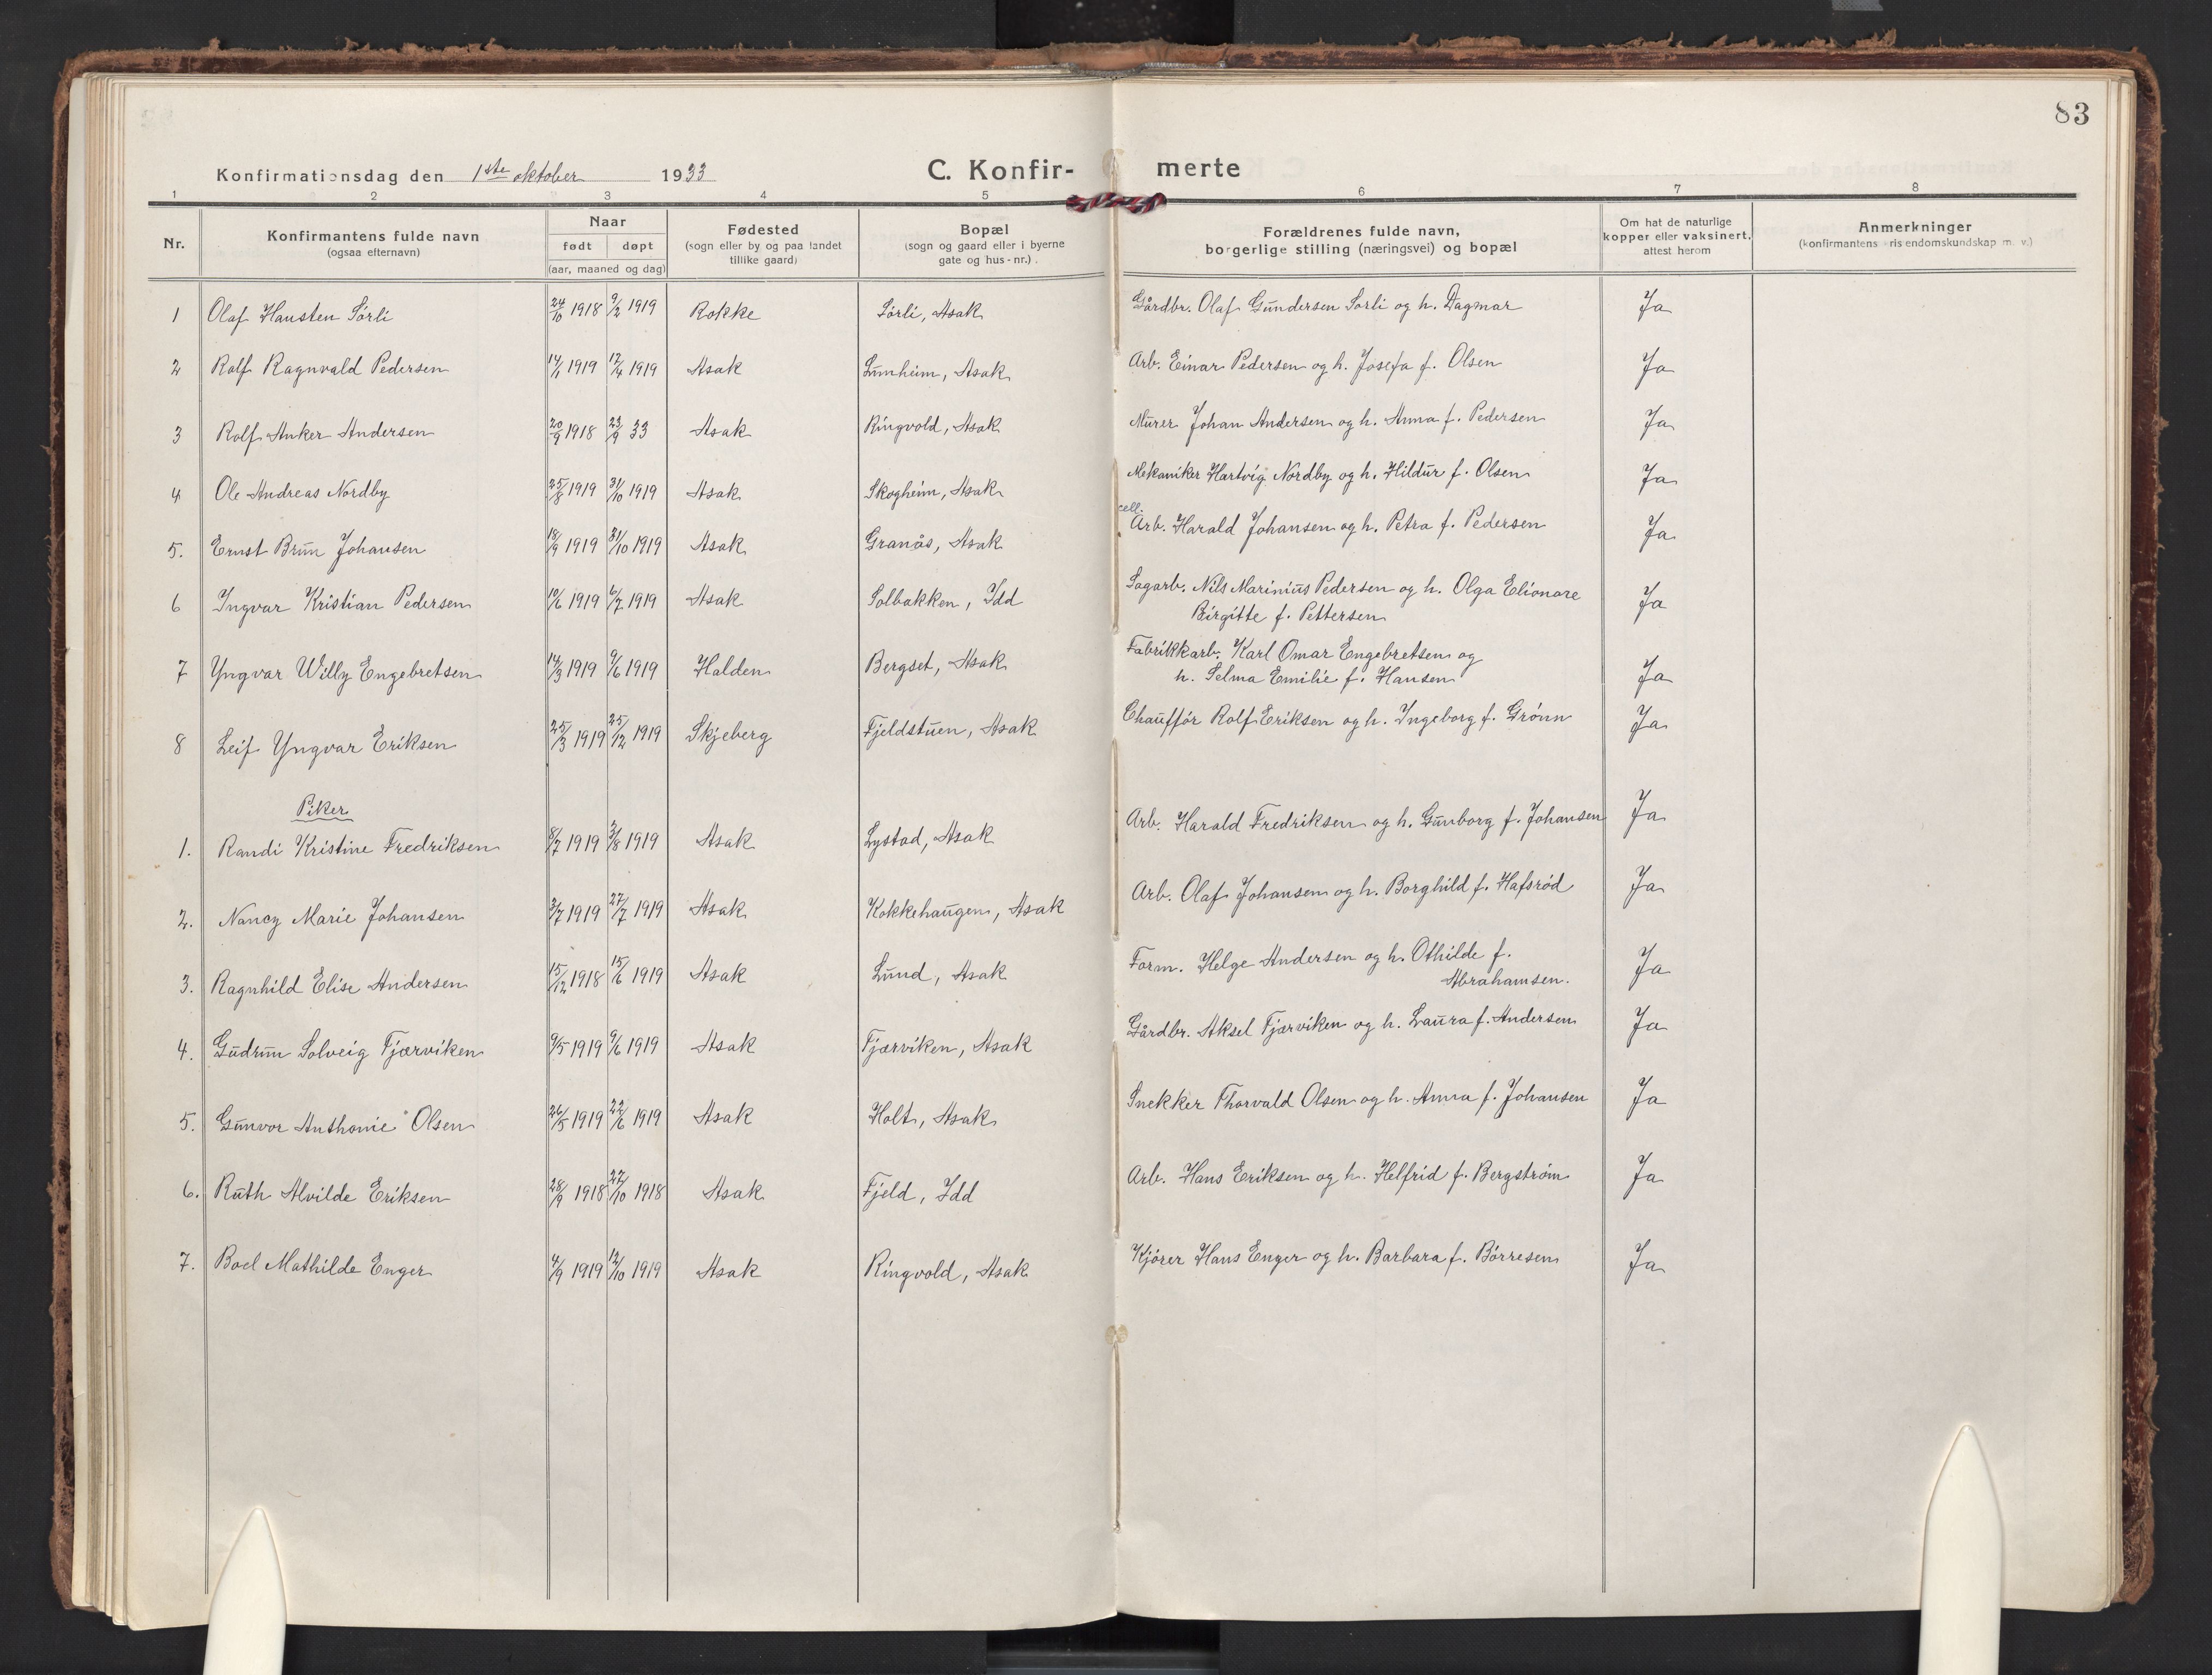 83
Konfirmationsdag den 1ste oktober 1933
C. Konfir- merte
1 2 3 4 5 6 7 8
Nr.
Konfirmantens fulde navn
(ogsaa efternavn)
Naar
født døpt
(aar, maaned og dag)
Fødested
(sogn eller by og paa landet
tillike gaard)
Bopæl
(sogn og gaard eller i byerne
gate og hus-nr.).
Forældrenes fulde navn,
borgerlige stilling (næringsvei) og bopæl
Om hat de naturlige
kopper eller vaksinert,
attest herom
Anmerkninger
(konfirmantens ris endomskundskap m. v.)
1 Olaf Hansten Sørli 24/10 1918 9/2 1919 Rokke Sørli, Asak Gårdbr. Olaf Gundersen Sørli og h. Dagmar Ja
2 Rolf Ragnvald Pedersen 14/1 1919 12/4 1919 Asak Lunheim, Asak Arb. Einar Pedersen og h. Josefa f. Olsen Ja
3 Rolf Anker Andersen 20/9 1918 23/9 33 Asak Ringvold, Asak Murer Johan Andersen og h. Anna f. Pedersen Ja
4 Ole Andreas Nordby 25/8 1919 31/10 1919 Asak Skogheim, Asak Mekaniker Hartvig Nordby og h. Hildur f. Olsen Ja
cell.
5. Ernst Brun Johansen 18/9 1919 31/10 1919 Asak Granås, Asak Arb. Harald Johansen og h. Petra f. Pedersen Ja
6 Ingvar Kristian Pedersen 10/6 1919 6/7 1919 Asak Solbakken, Idd Sagarb. Nils Marinius Pedersen og h. Olga Elionore
Birgitte f. Pettersen Ja
7 Yngvar Willy Engebretsen 14/3 1919 9/6 1919 Halden Bergset, Asak Fabrikkarb. Karl Omar Engebretsen og
h. Selma Emilie f. Hansen Ja
8 Leif Yngvar Eriksen 25/3 1919 25/12 1919 Skjeberg Fjeldstuen, Asak Chauffør Rolf Eriksen og h. Ingeborg f. Grønn Ja
Piker
1. Randi Kristine Fredriksen 8/7 1919 3/8 1919 Asak Lystad, Asak Arb. Harald Fredriksen og h. Gunborg f. Johansen Ja
2. Nancy Marie Johansen 3/7 1919 27/7 1919 Asak Kokkehaugen, Asak Arb. Olaf Johansen og h. Borghild f. Hafsrød Ja
3. Ragnhild Elise Andersen 15/12 1918 15/6 1919 Asak Lund, Asak Form. Helge Andersen og h. Othilde f.
Abrahamsen. Ja
4. Gudrun Solveig Tjærviken 9/5 1919 9/6 1919 Asak Tjærviken, Asak Gårdbr. Aksel Tjærviken og h. Laura f. Andersen Ja
5. Gunvor Anthonie Olsen 26/5 1919 22/6 1919 Asak Holt, Asak Snekker Thorvald Olsen og h. Anna f. Johansen Ja
6. Ruth Alvilde Eriksen 28/9 1918 27/10 1918 Asak Fjeld, Idd Arb. Hans Eriksen og h. Helfrid f. Bergstrøm Ja
7. Boel Mathilde Enger 4/9 1919 12/10 1919 Asak Ringvold, Asak Kjører Hans Enger og h. Barbara f. Børresen Ja